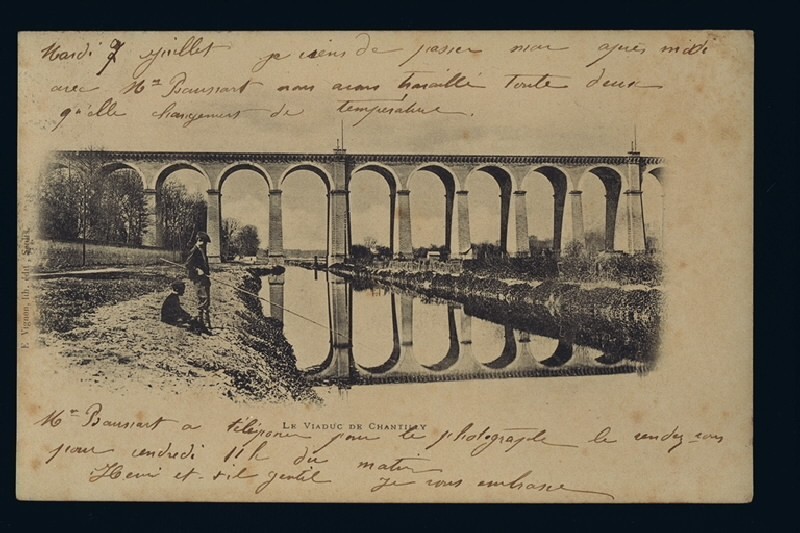 Mardi 7 juillet je viens de passer mon après midi
avec Mme Baussart nous avons travaillé toute deux
qu'elle changement de température.
E. Vignon, lib. édit., Senlis
LE VIADUC DE CHANTILLY
Mme Baussart a téléphoner pour le photographe le rendez-vous
pour vendredi 11h du matin
Henri et-s-il gentil Je vous embrasse